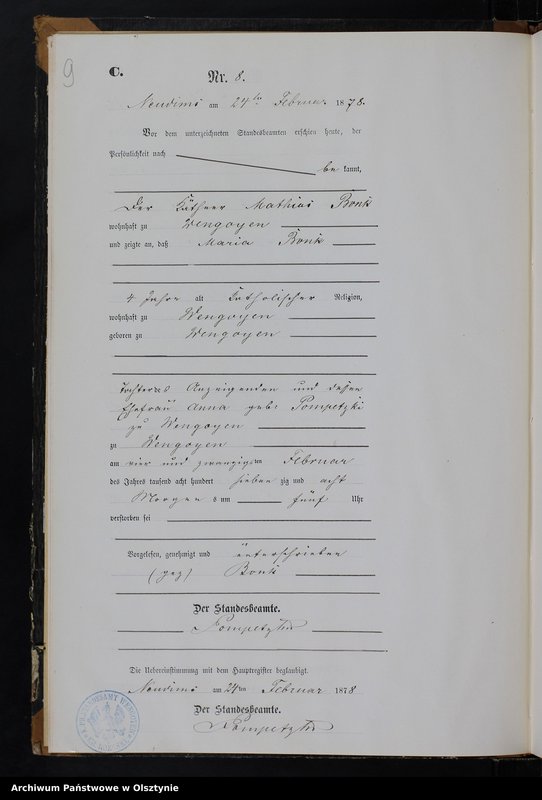 9
C.
Nr. 8.
Neudims am 24ten Februar 1878.
Vor dem unterzeichneten Standesbeamten erschien heute, der
Persönlichkeit nach
be kannt,
Der Käthner Mathias Bonk
wohnhaft zu Wengoyen
und zeigte an, daß Maria Bonk
4 Jahre alt katholischer Religion,
wohnhaft zu Wengoyen
geboren zu Wengoyen
Tochter des Anzeigenden und dessen
Ehefrau Anna geb: Pompetzki
zu Wengoyen
zu Wengoyen
am vier und zwanzigsten Februar
des Jahres tausend acht hundert sieben zig und acht
Morgens um fünf Uhr
verstorben sei
Vorgelesen, genehmigt und unterschrieben
(gez) Bonk
Der Standesbeamte.
Pompetzki
Die Uebereinstimmung mit dem Hauptregister beglaubigt.
Neudims am 24ten Februar 1878
Der Standesbeamte.
Pompetzki
Archiwum Państwowe w Olsztynie